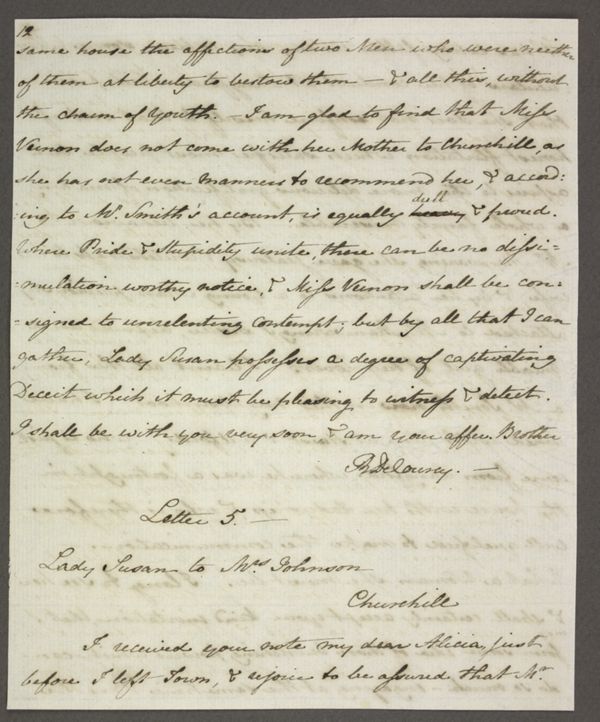 12
same house the affections of two Men who were neither
of them at liberty to bestow them — & all this, without
the charm of Youth. — I am glad to find that Miss
Vernon does not come with her Mother to Churchill, as
she has not even Manners to recommend her, & accord:
:ing to Mr. Smith's account, is equally heavy dull & proud.
Where Pride & Stupidity unite, there can be no dissi=
=mulation worthy notice, & Miss Vernon shall be con:
=signed to unrelenting contempt; but by all that I can
gather, Lady Susan possesses a degree of captivating
Deceit which it must be pleasing to witness & detect.
I shall be with you very soon & am your affec. Brother
R De Courcy. —
Letter 5. —
Lady Susan to Mrs Johnson
Churchill
I received your note my dear Alicia, just
before I left Town, & rejoice to be assured that Mr.